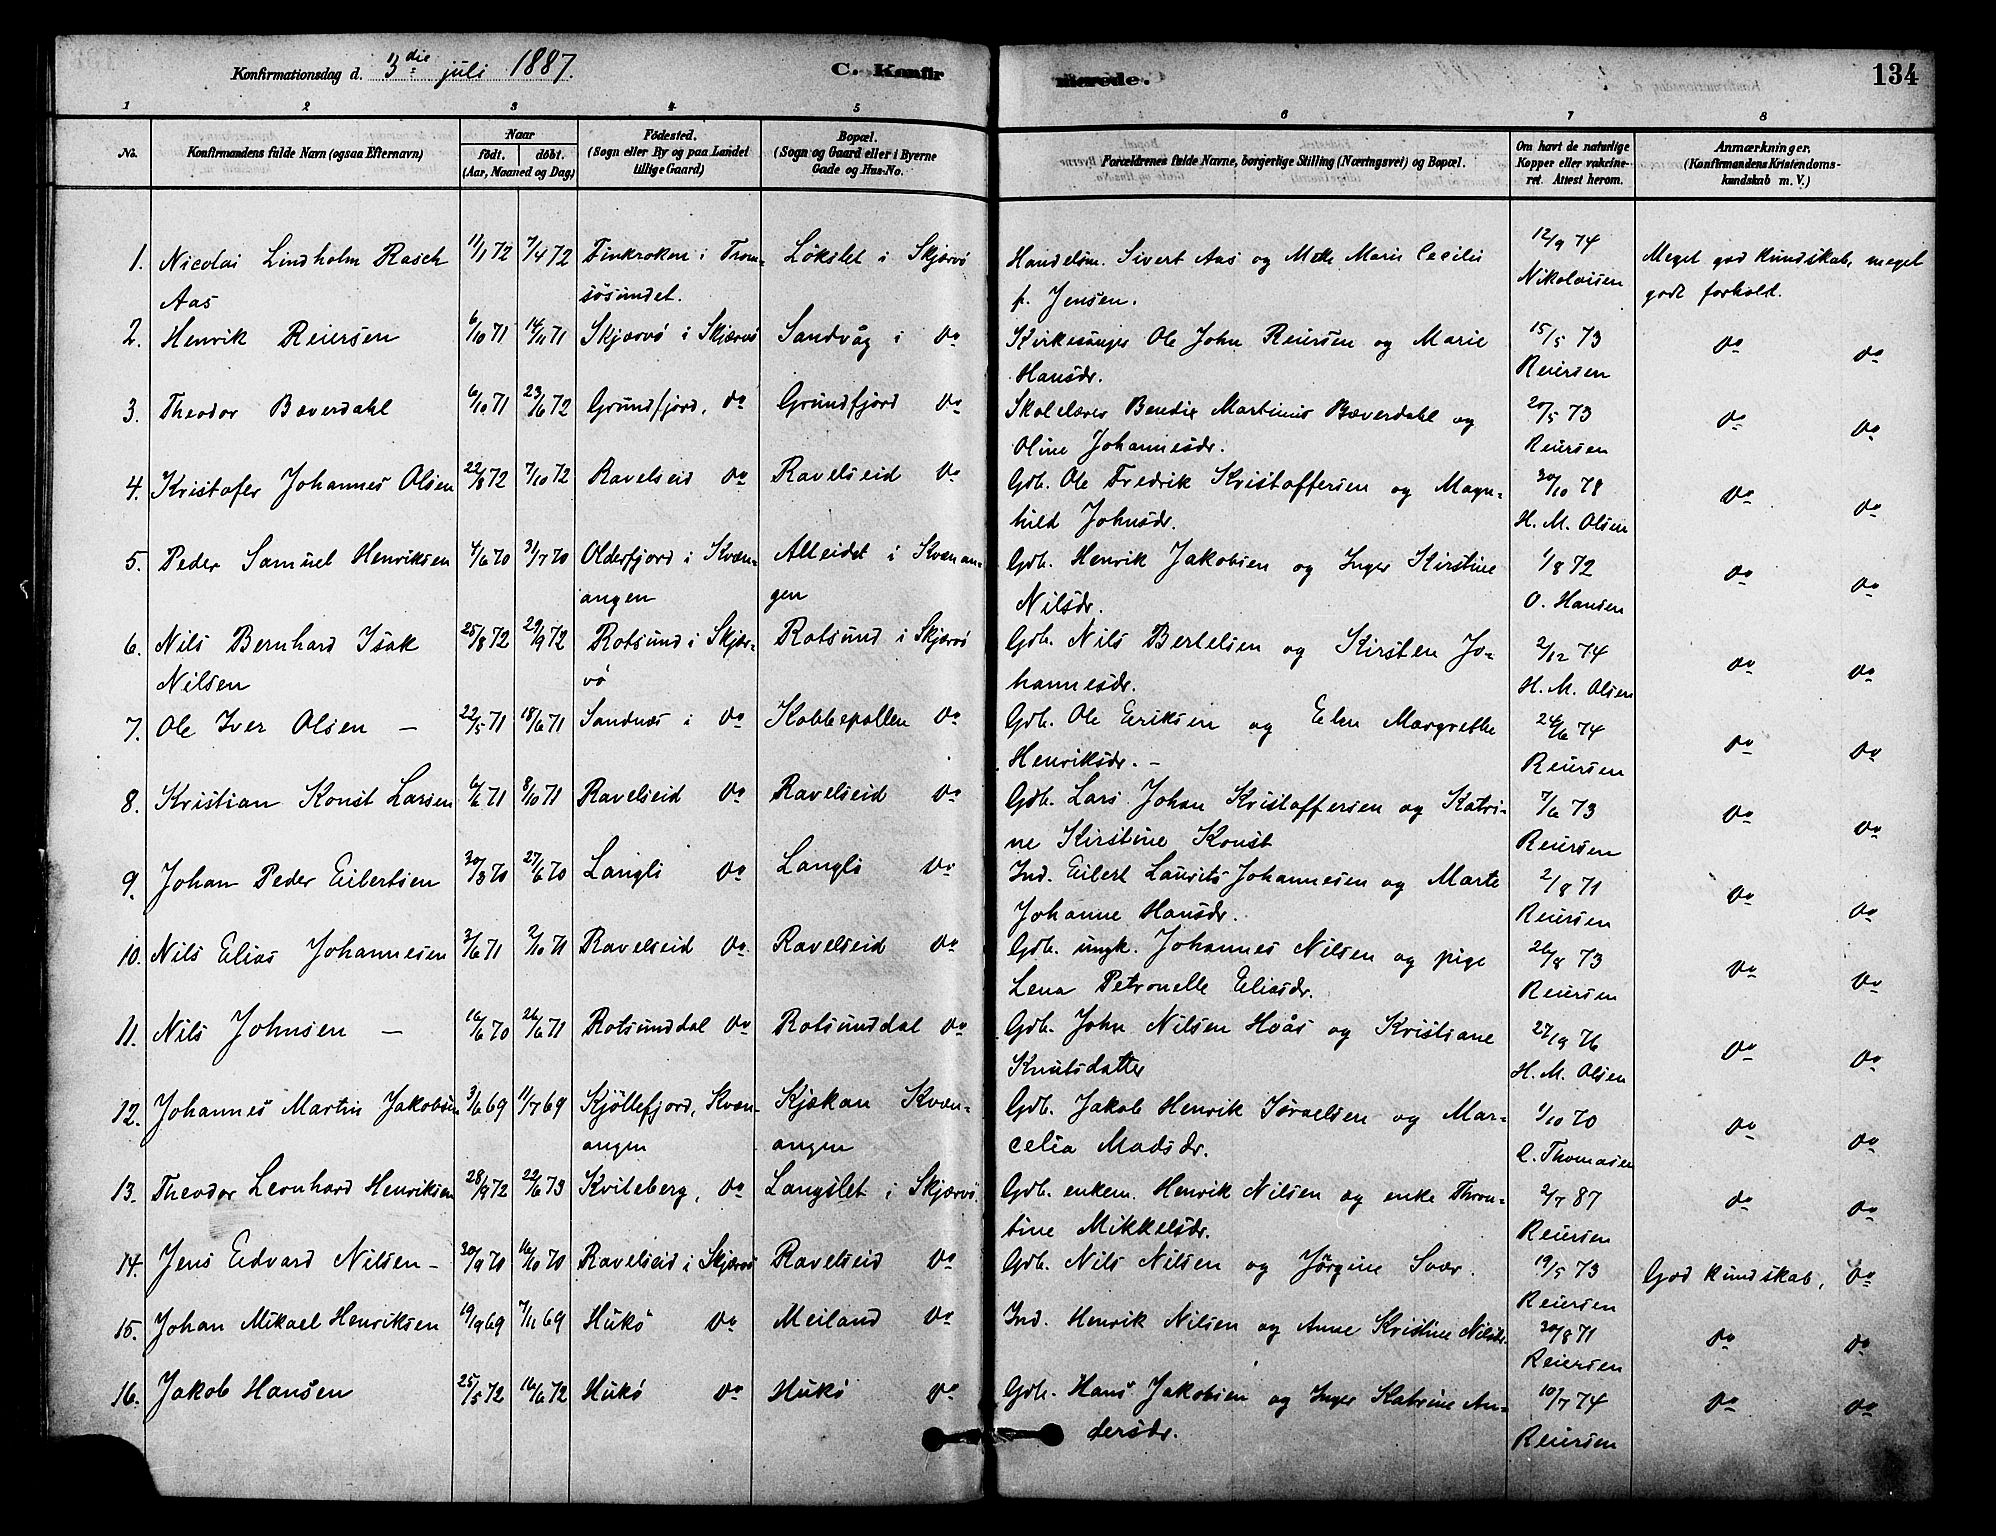 Konfirmationsdag d. 3die juli 1887. C. Konfirmerede. 134
1 2 3 4 5 6 7 8
No. Konfirmandens fulde Navn (ogsaa Efternavn) Naar født. døbt. (Aar, Maaned og Dag) Fødested. (Sogn eller By og paa Landet tillige Gaard) Bopæl. (Sogn og Gaard eller i Byerne Gade og Hus-No. Forældrenes fulde Navne, borgerlige Stilling (Næringsvei) og Bopæl. Om havt de naturlige Kopper eller vakcineret. Attest herom. Anmærkninger. (Konfirmandens Kristendomskundskab m. V.)
1. Nicolai Lindholm Rasch 11/1 72 7/4 72 Finkroken i Trom- Løkslet i Skjærvø Handelsm. Sivert Aas og Mette Marie Cecilie 12/9 74 Meget god kundskab, meget
Aas søsundet. f. Jensen. Nikolaisen godt forhold.
2. Henrik Reiersen 6/10 71 14/11 71 Skjærvø i Skjærvø Sandvåg i do Kirkesanger Ole John Reiersen og Marie 15/5 73 do do
Hansdr. Reiersen
3. Theodor Bæverdahl 6/10 71 23/6 72 Grundfjord, do Grundfjord do Skolelærer Bendix Martinus Bæverdahl og 20/5 73 do do
Oline Johannesdr. Reiersen
4. Kristofer Johannes Olsen 22/8 72 7/10 72 Ravelseid do Ravelseid do Gdb. Ole Fredrik Kristoffersen og Magn- 30/10 78 do do
hild Johnsdr. H. M. Olsen
5. Peder Samuel Henriksen 4/6 70 31/7 70 Olderfjord i Kvæn- Alteidet i Kvænan- Gdb. Henrik Jakobsen og Inger Kirstine 1/8 72 do do
angen gen Nilsdr. O. Hansen
6. Nils Bernhard Isak 25/8 72 29/9 72 Rotsund i Skjær- Rotsund i Skjærvø Gdb. Nils Bertelsen og Kirsten Jo- 2/12 74 do do
Nilsen vø hannesdr. H. M. Olsen
7. Ole Iver Olsen – 22/5 71 18/6 71 Sandnes i do Kobbepollen do Gdb. Ole Eriksen og Elen Margrethe 24/6 74 do do
Henriksdr. – Reiersen
8. Kristian Konst Larsen 6/6 71 8/10 71 Ravelseid do Ravelseid do Gdb. Lars Johan Kristoffersen og Katri- 7/6 73 do do
ne Kirstine Konst Reiersen
9. Johan Peder Eilertsen 30/3 70 27/6 70 Langli do Langli do Ind. Eilert Laurits Johannesen og Marte 2/8 71 do do
Johanne Hansdr. Reiersen
10. Nils Elias Johannesen 3/6 71 2/10 71 Ravelseid do Ravelseid do Gdb. ungk. Johannes Nilsen og pige 26/8 73 do do
Lena Petronelle Eliasdr. Reiersen
11. Nils Johnsen – 16/6 70 26/6 71 Rotsunddal do Rotsunddal do Gdb. John Nilsen Hoås og Kristiane 76 do do
Knutsdatter H. M. Olsen
12. Johannes Martin Jakobsen 3/6 69 11/7 69 Kjøllefjord, Kvæn- Kjækan Kvæn- Gdb. Jakob Henrik Israelsen og Mar- 1/10 70 do do
angen angen celia Madsdr. C. Thomasen
13. Theodor Leonhard Henriksen 28/9 72 22/6 73 Kviteberg, do Langslet i Skjærvø. Gdb. enkem. Henrik Nilsen og enke Thron- 2/7 87 do do
tine Mikkelsdr. Reiersen
14. Jens Edvard Nilsen – 30/9 70 16/10 70 Ravelseid i Skjærvø Ravelseid do Gdb. Nils Nilsen og Jørgine Svær. 19/5 73 God kundskab, do
Reiersen
15. Johan Mikael Henriksen 19/9 69 7/11 69 Hukø do Meiland do Ind. Henrik Nilsen og Anne Kristine Nilsdr. 30/8 71 do do
Reiersen
16. Jakob Hansen 25/5 72 16/6 72 Hukø do Hukø do Gdb. Hans Jakobsen og Inger Katrine An- 10/7 74 do do
dersdr. Reiersen